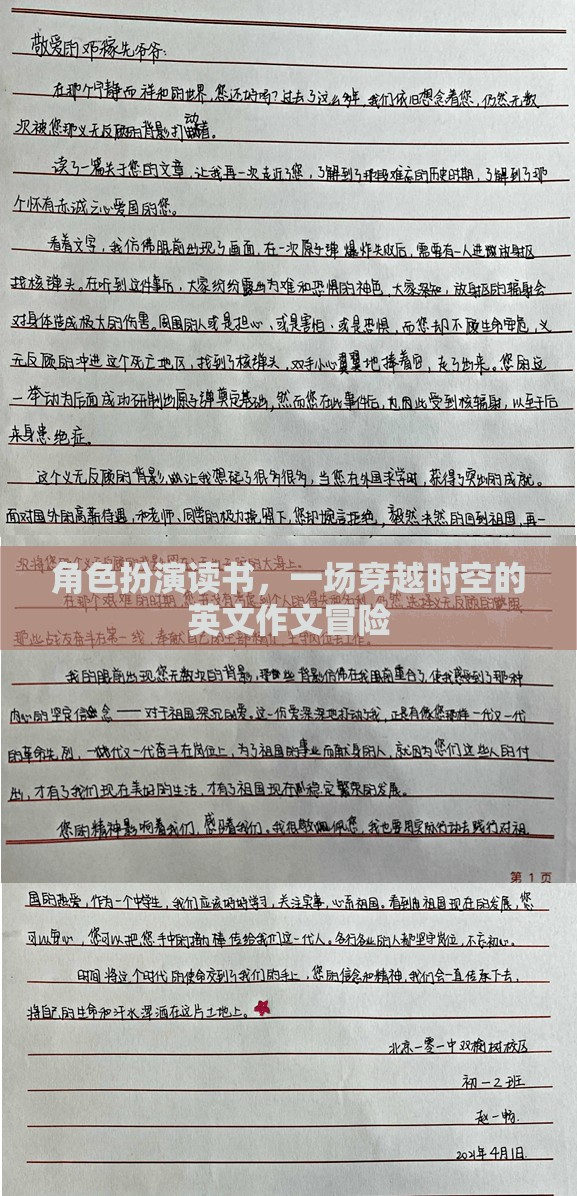 敬爱的邓稼先爷爷：
在那个宁静而祥和的世界，您还好吗？过去了这么多年，我们依旧想念着您，仍然无数
次被您那义无反顾的背影打动着。
读了一篇关于您的文章，让我再一次走近了您，了解到了那段难忘的历史时期，了解到了那
个怀有赤诚之心爱国的您。
看着文字，我仿佛眼前出现了画面，在一次原子弹爆炸失败后，需要有一人进放射区
找核弹头。在听到这件事后，大家纷纷露出为难和恐惧的神色，大家深知，放射区的辐射会
对身体造成极大的伤害。周围的人或是担心，或是害怕，或是恐惧，而您却不顾生命安危，义
无反顾的冲进这个死亡地区，找到了核弹头，双手小心翼翼地捧着它，走了出来。您的这
一举动为后面成功研制出原子弹奠定基础，然而您在此事件后，内因此受到核辐射，以至于后
来身患绝症。
这个义无反顾的背影，让我想碇了很多很多，当您在外国求学时，获得了突出的成就。
面对国外的高薪待遇，和老师、同学的极力挽留下，您却婉言拒绝，毅然决然的回到祖国，再一
角色扮演读书，一场穿越时空的
英文作文冒险
我的眼前出现您无数次的背影，那些背影仿佛在我眼前重合了，使我感受到了那种
内心的坚定信念——对于祖国深沉的爱。这一份爱深深地打动了我，正是有像您那样一代又一代
的革命先烈，一代又一代奋斗在岗位上，为了祖国的事业而献身的人，就因为您们这些人的付
出，才有了我们现在美好的生活，才有了祖国现在稳定繁荣的发展。
您的精神影响着我们，感染着我们。我很敬佩您，我也要用实际行动去践行对祖
第 1 页
国的热爱，作为一个中学生，我们应该好好学习，关注实事，心系祖国。看到的祖国现在的发展，您
可以安心，您可以把您手中的接力棒传给我们这一代人。各行各业的人都坚守岗位，不忘初心。
时间将这个时代的使命交到了我们的手上，您的信念和精神，我们会一直传承下去，
将自己的生命和汗水挥洒在这片土地上。
北京一零一中双榆树校区
初一2班
赵一畅
2021年4月1日